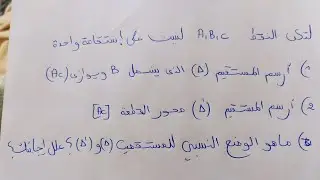 لتكن النقط A,B,C ليست على إستقامة واحدة
1) أرسم المستقيم (Δ) الذي يشمل B ويوازي (AC)
2) أرسم المستقيم (Δ') محور القطعة [AC]
3) ماهو الوضع النسبي للمستقيمين (Δ) و (Δ')؟ علل إجابتك؟